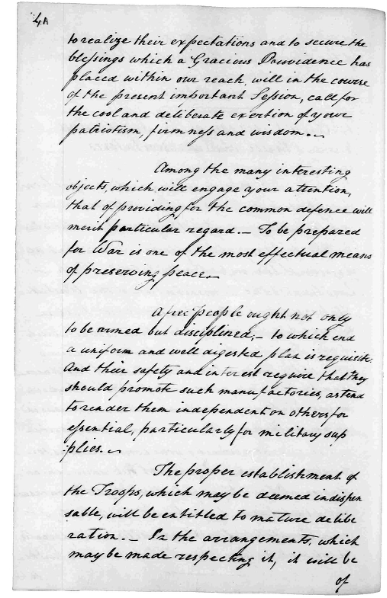 4
to realize their expectations and to secure the
blessings which a Gracious Providence has
placed within our reach, will in the course
of the present important Session, call for
the cool and deliberate exertion of your
patriotism, firmness and wisdom.
Among the many interesting
objects, which will engage your attention,
that of providing for the common defence will
merit particular regard. – To be prepared
for War is one of the most effectual means
of preserving peace.
A free people ought not only
to be armed but disciplined; – to which end
a uniform and well digested plan is requisite:
And their safety and interest require that they
should promote such manufactories, as tend
to render them independent on others for
essential, particularly for military sup
plies.
The proper establishment of
the Troops, which may be deemed indispen
sable, will be entitled to mature delibe
ration. – In the arrangements, which
may be made respecting it, it will be
of